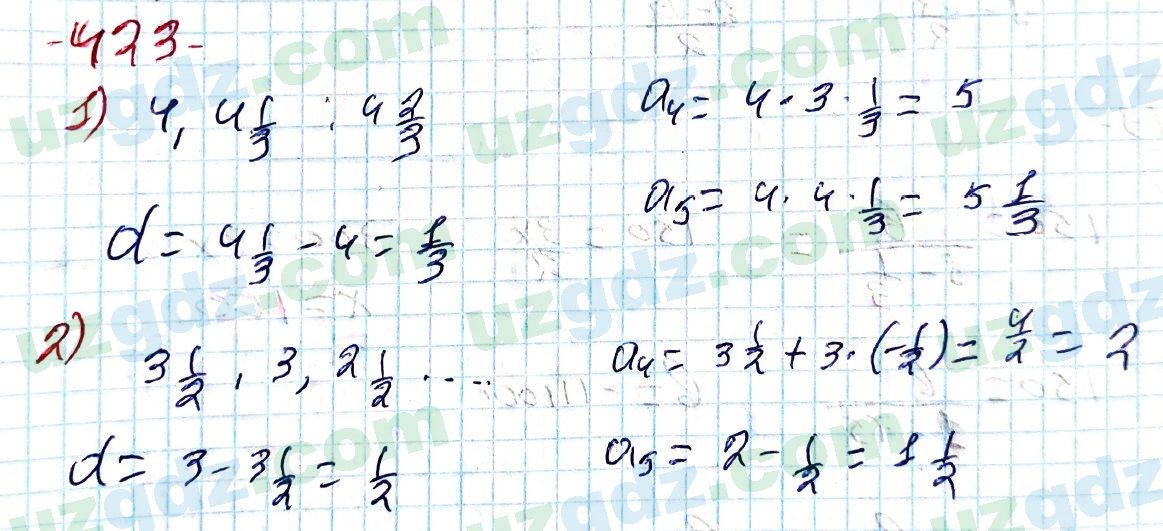 -423-
1) 4, 4 1/3 ; 4 2/3
d = 4 1/3 - 4 = 1/3
a₄ = 4 · 3 · 1/3 = 5
a₅ = 4 · 4 · 1/3 = 5 1/3
2) 3 1/2, 3, 2 1/2 .....
d = 3 - 3 1/2 = 1/2
a₄ = 3 1/2 + 3 · (-1/2) = 4/2 = 2
a₅ = 2 - 1/2 = 1 1/2
uzgdz.com